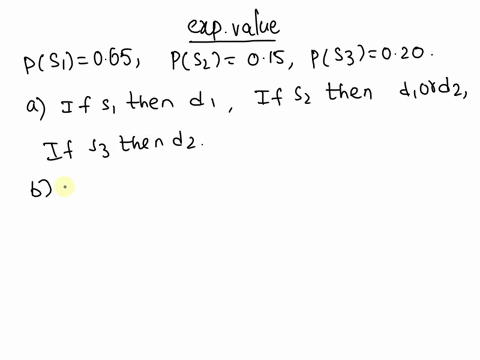 exp. value
P(S1)=0.65, P(S2)= 0.15, P(S3)=0.20.
a) If s1 then d1, If s2 then d1 or d2,
If s3 then d2.
b)